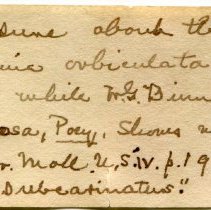 sume about the
orbiculata
while W.G. Binn
osa, Poey, Shows
r. Moll. U.S. IV. p. 19
Subcarinatus".